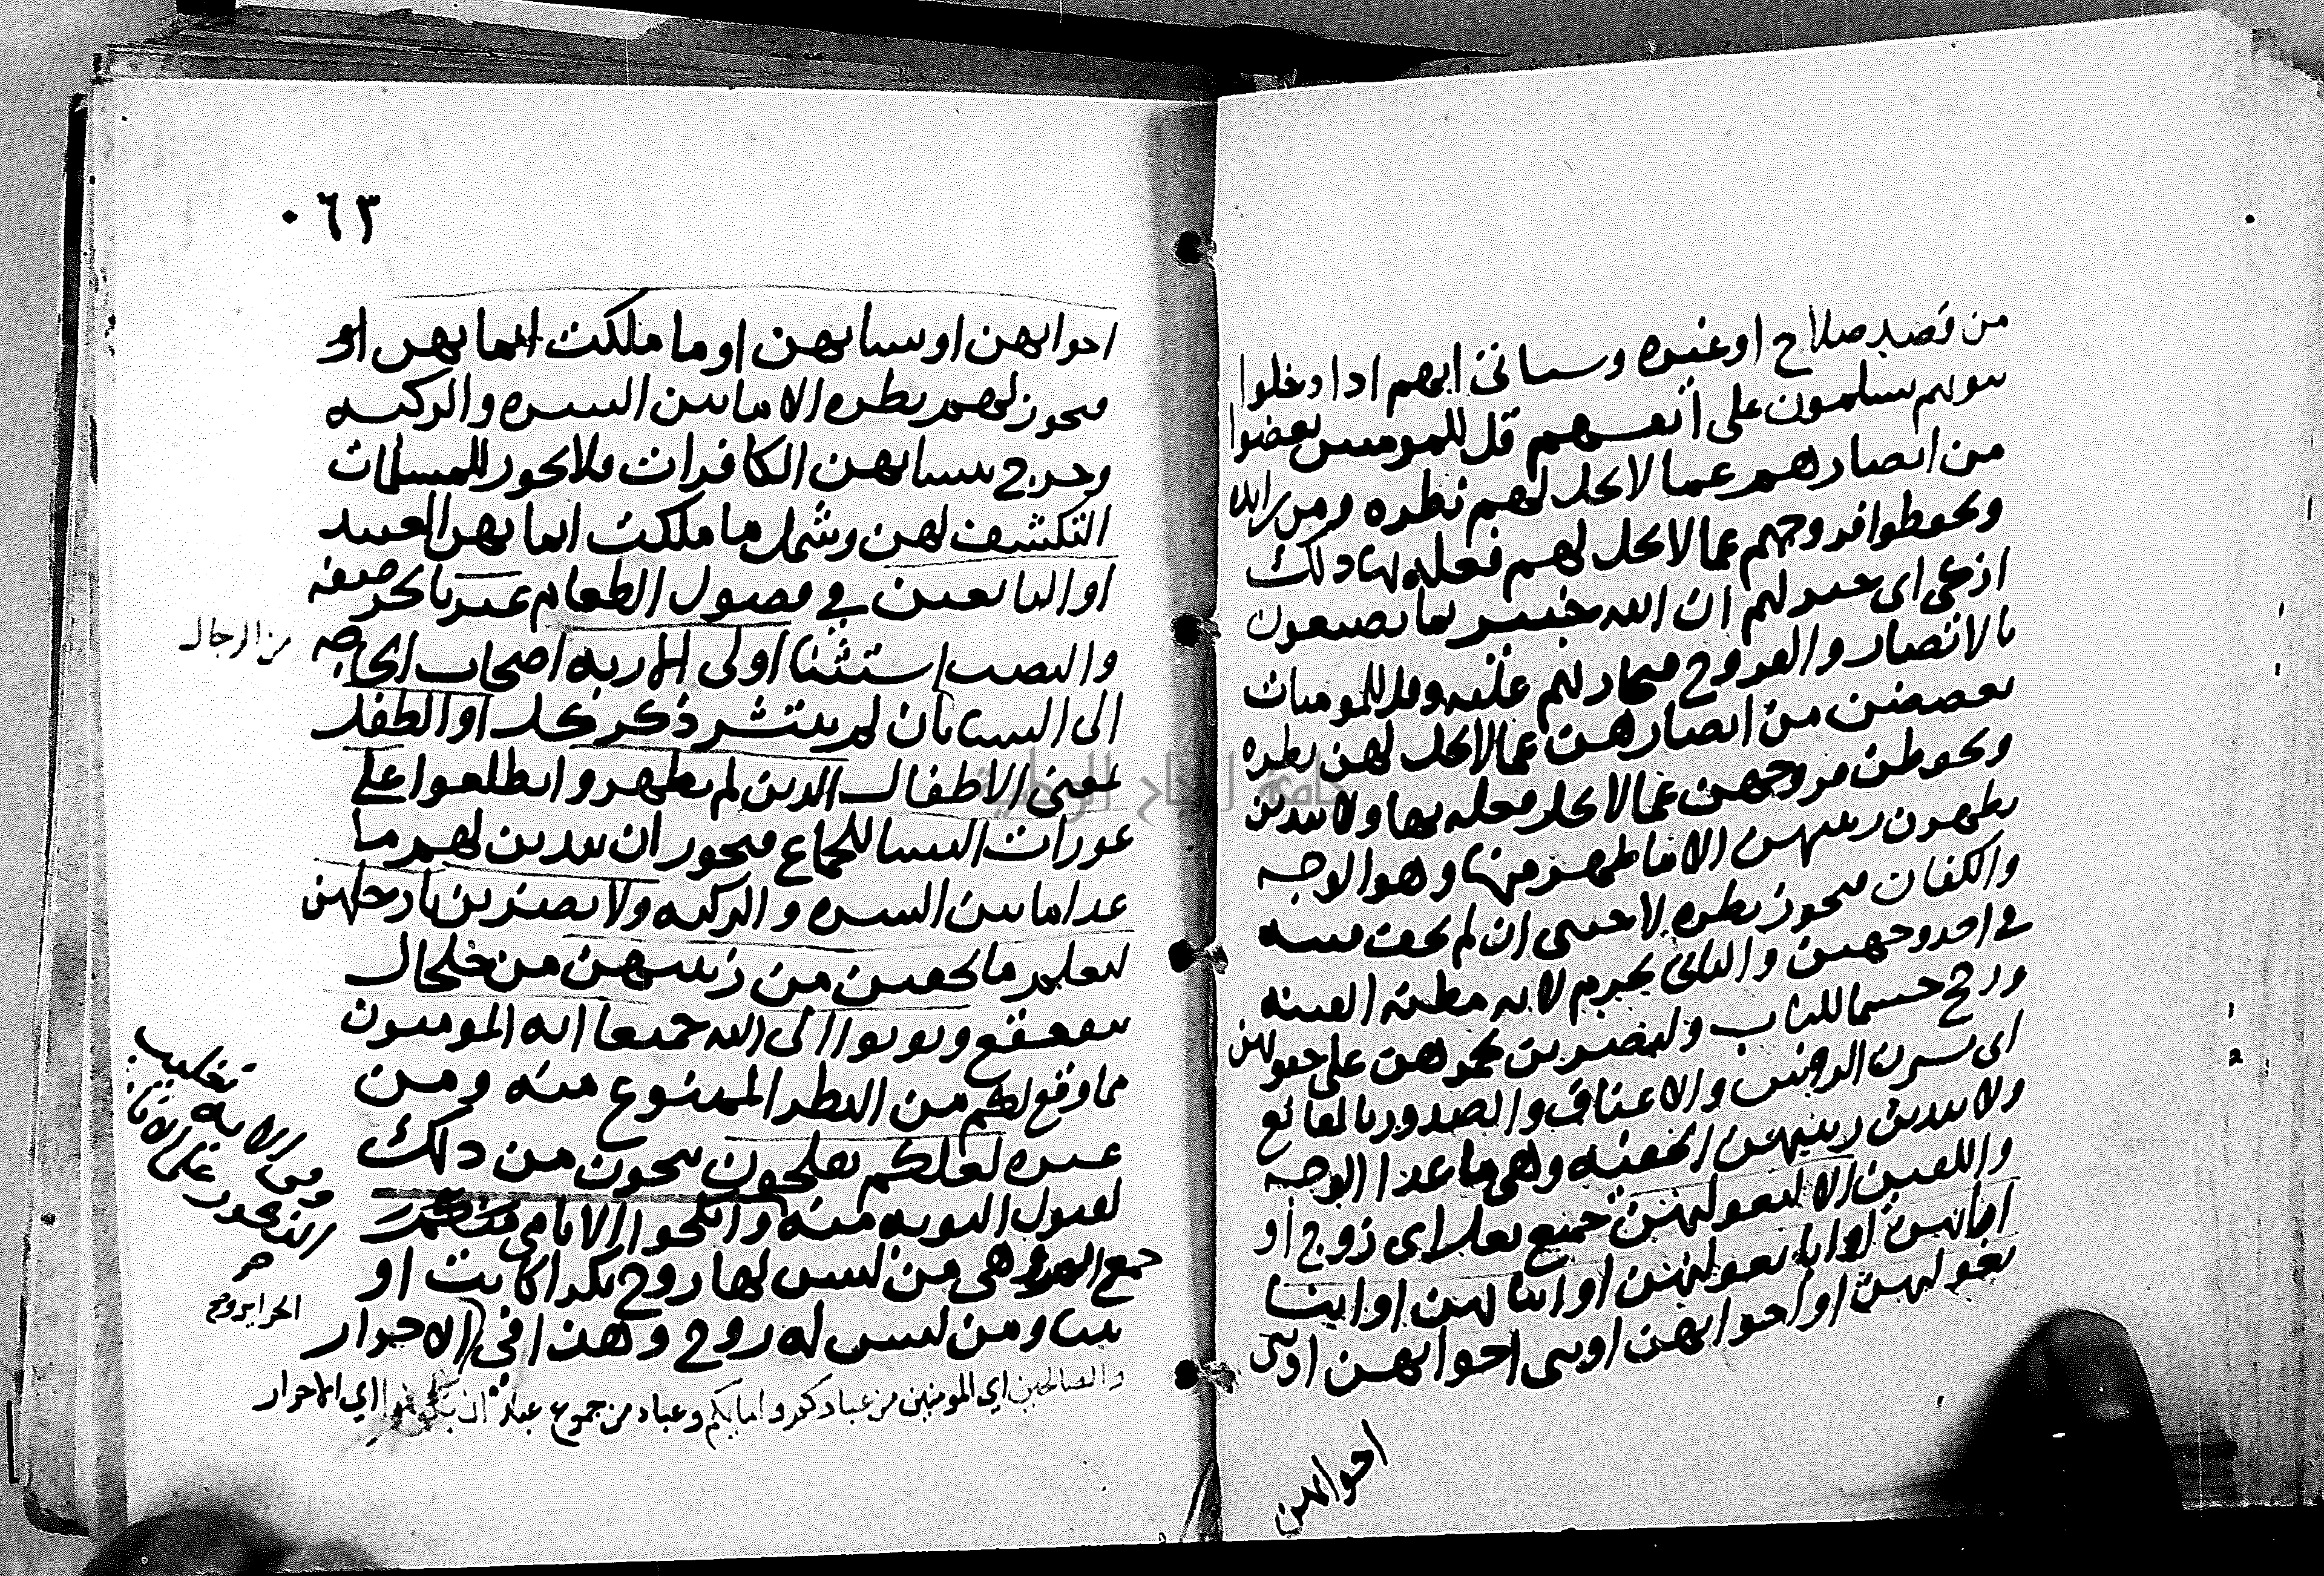 من قصد صلاح او غيره وسياتي انهم اذا دخلوا
بيوتهم يسلمون على انفسهم قل للمومنين يغضوا
من ابصارهم عما لا يحل لهم نظره ومن زايده
ويحفظوا فروجهم عما لا يحل لهم فعله بها ذلك
ازكى اى خير لهم ان الله خبير بما يصنعون
بالابصار والفروج فيجازيهم عليه وقل للمومنات
يغضضن من ابصارهن عما لا يحل لهن نظره
ويحفظن فروجهن عما لا يحل فعله بها ولا يبدين
يظهرن زينتهن الا ما ظهر منها وهو الوجه
والكفان فيجوز نظره لاجنبى ان لم يخف فتنه
في احد وجهين والثانى يحرم لانه مظنه الفتنه
ورجح حسما للباب وليضربن بخمرهن على جيوبهن
اى يسترن الروس والاعناق والصدور بالمقانع
ولا يبدين زينتهن الخفيه وهى ما عدا الوجه
والكفين الا لبعولتهن جمع بعل اى زوج او
ابائهن او ابا بعولتهن او ابنائهن او ابنا
بعولتهن او اخوانهن او بنى اخوانهن او بنى
اخواتهن
٠٦٣
اخواتهن او نسائهن او ما ملكت ايمانهن او
فيجوز لهم نظره الا ما بين السره والركبه
وخرج بنسائهن الكافرات فلا يجوز للمسلمات
التكشف لهن وشمل ما ملكت ايمانهن العبيد
او التابعين في فضول الطعام غير بالجر صفه
والنصب استثنا اولى الاربه اصحاب الحاجه
من الرجال
الى النسا بان لم ينتشر ذكر كل او الطفل
بمعنى الاطفال الذين لم يظهروا يطلعوا على
عورات النسا للجماع فيجوز ان يبدين لهم ما
عدا ما بين السره والركبه ولا يضربن بارجلهن
ليعلم ما يخفين من زينتهن من خلخال
يتقعقع وتوبوا الى الله جميعا ايه المومنون
مما وقع لكم من النظر الممنوع منه ومن
غيره لعلكم تفلحون تنجون من ذلك
لقبول التوبه منه وانكحوا الايامى منكم
جمع ايم وهى من ليس لها زوج بكرا كانت او
ثيبا ومن ليس له زوج وهذا في الاحرار
والصالحين اي المومنين من عبادكم وامايكم وعباد من جموع عبد ان يكونوا اي الاحرار
وفى الايه تغليب
الذكور على الاناث
صح